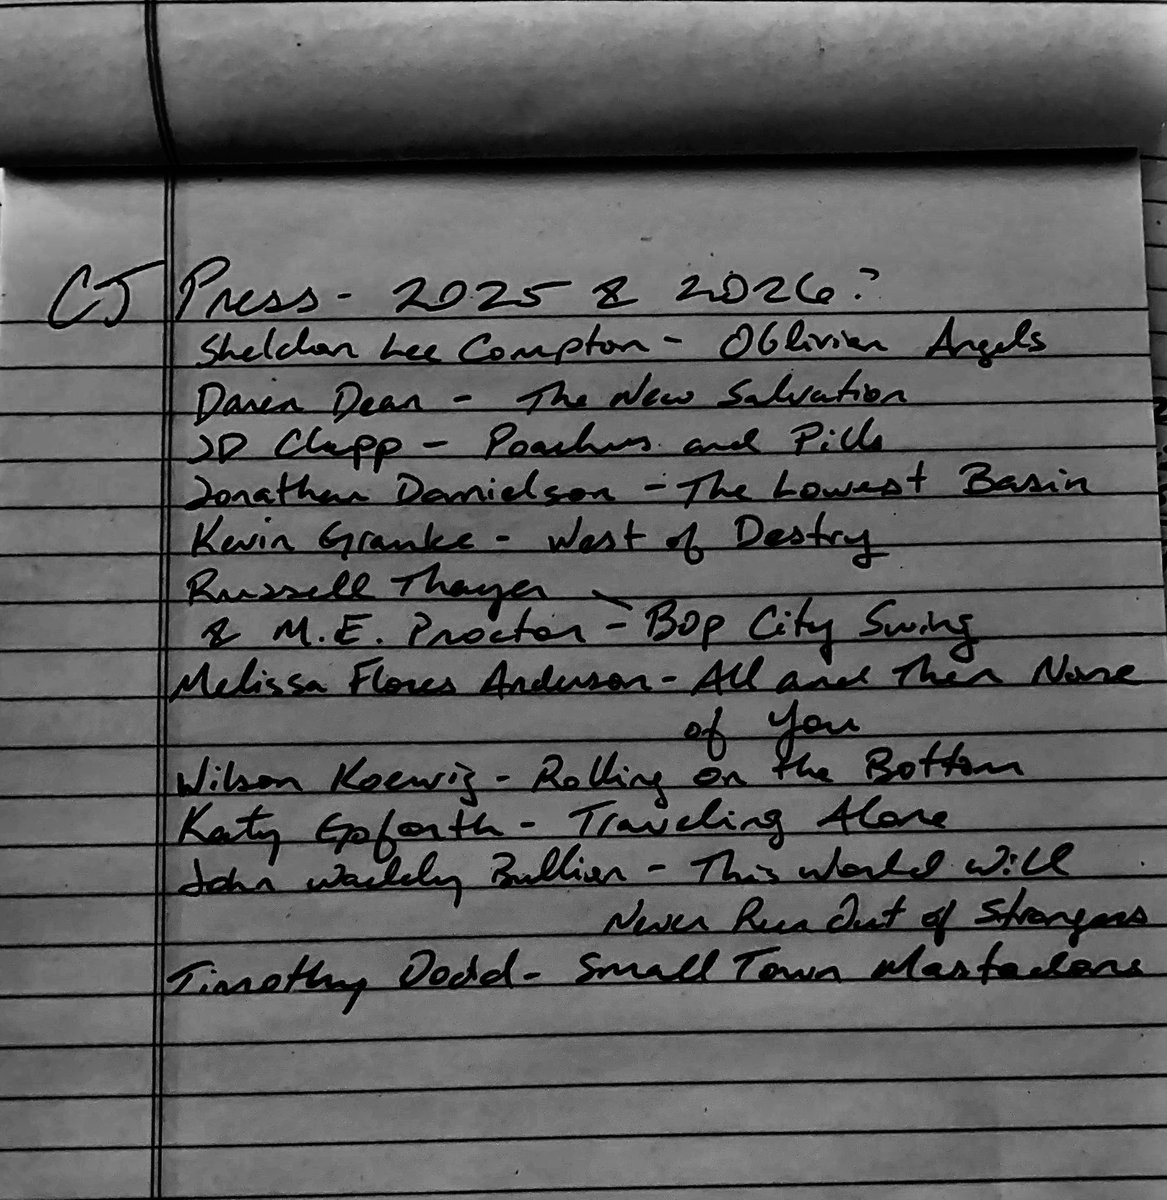 CJ Press - 2025 & 2026?
Sheldon Lee Compton - Oblivion Angels
Daren Dean - The New Salvation
JD Clapp - Poachers and Pills
Jonathan Danielson - The Lowest Basin
Kevin Grauke - West of Destry
Russell Thayer
& M.E. Proctor - Bop City Swing
Melissa Flores Anderson - All and Then None
of You
Wilson Koewing - Rolling on the Bottom
Katy Goforth - Traveling Alone
John Waddy Bullion - This World Will
Never Run Out of Strangers
Timothy Dodd - Small Town Mastodons